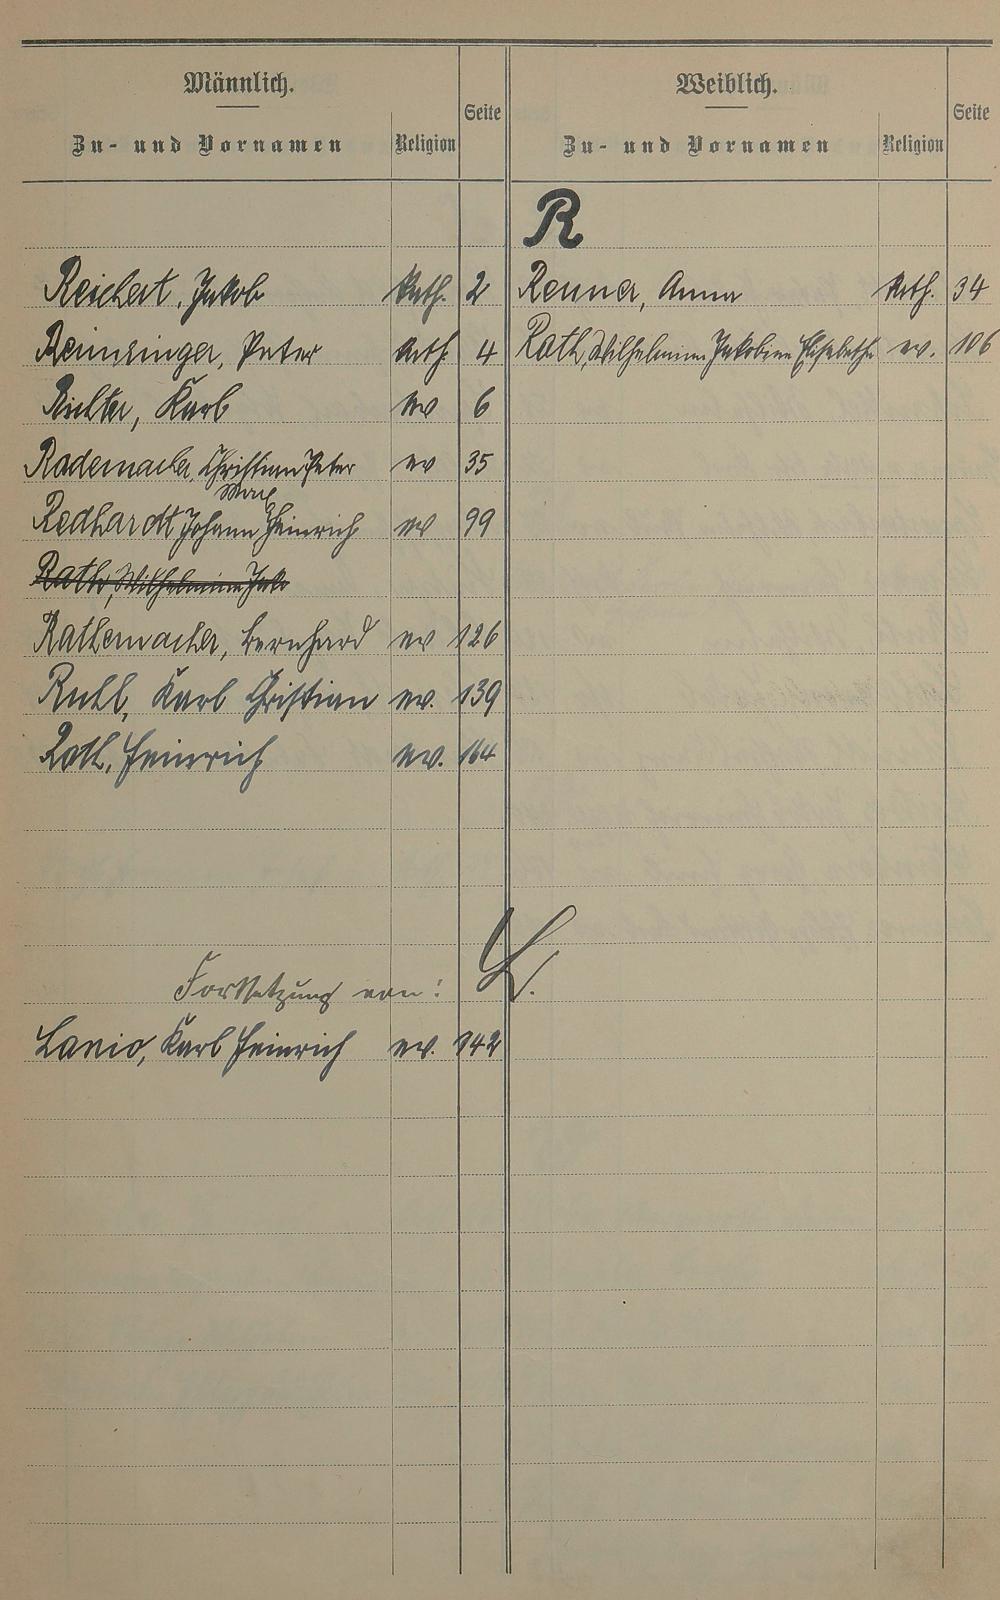 Männlich.
Zu- und Vornamen
Religion
Seite
Weiblich.
Zu- und Vornamen
Religion
Seite
R
Reichert, Jakob kath. 2
Renner, Anna kath. 34
Renninger, Peter kath. 4
Rath, Wilhelmine Jakobine Elisabetha ev. 106
Richter, Karl ev 6
Rademacher, Christian Peter ev 35
Redhardt Johann Heinrich ev 99
Rath, Wilhelmine Jako
Rathemacher, Bernhard ev 126
Ruhl, Karl Christian ev. 139
Roth, Heinrich ev. 164
Fortsetzung von: L.
Lanio, Karl Heinrich ev. 142